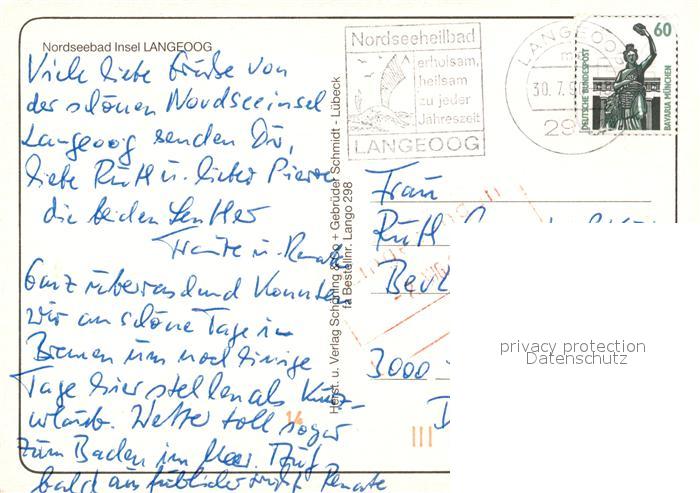 Nordseebad Insel LANGEOOG
Viele liebe Grüße von
der schönen Nordseeinsel
Langeoog senden Dir,
liebe Ruth u. lieber Pierre
die beiden
Traute u. Renate
Ganz überraschend konnten
wir an schöne Tage in
Bremen um noch einige
Tage hier als Kurz-
urlaub. Wetter toll sogar
zum Baden im Meer. Auf
bald ausführlicher Renate
Herst. u. Verlag Schöning & Co + Gebrüder Schmidt - Lübeck
fa Bestellnr. Lango 298
Nordseeheilbad
erholsam,
heilsam
zu jeder
Jahreszeit
LANGEOOG
LANGEOOG
30.7.9
29
60
DEUTSCHE BUNDESPOST
BAVARIA MÜNCHEN
Frau
Ruth
3000
privacy protection
Datenschutz